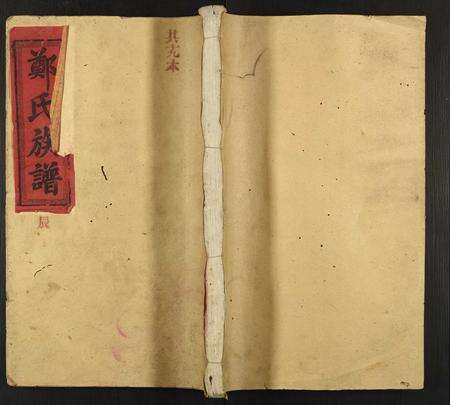 鄭氏族譜
辰
共九本